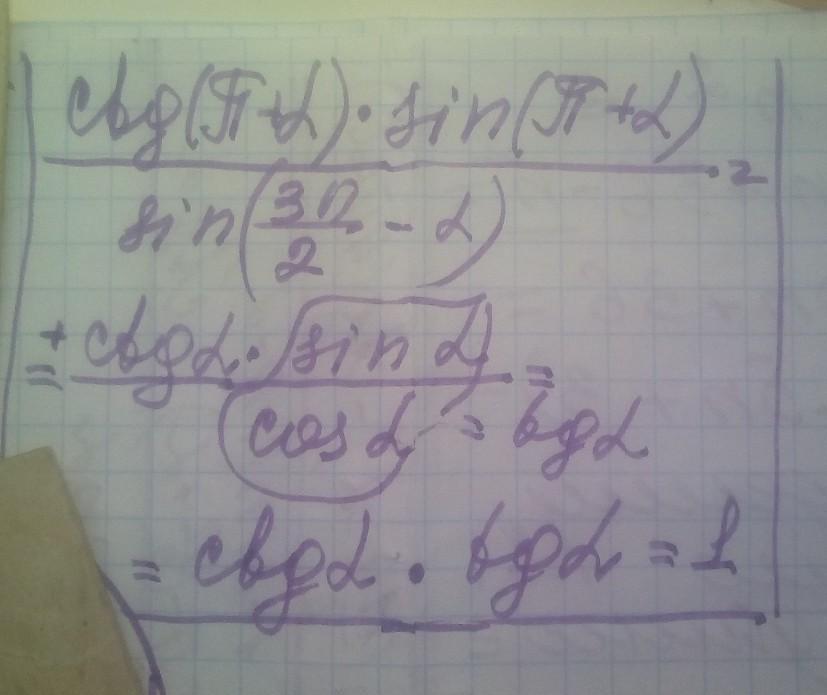 ctg(π+α)·sin(π+α)
sin(3π/2 - α) =
= + ctgα·sin α =
cos α = tgα
= ctgα · tgα = 1